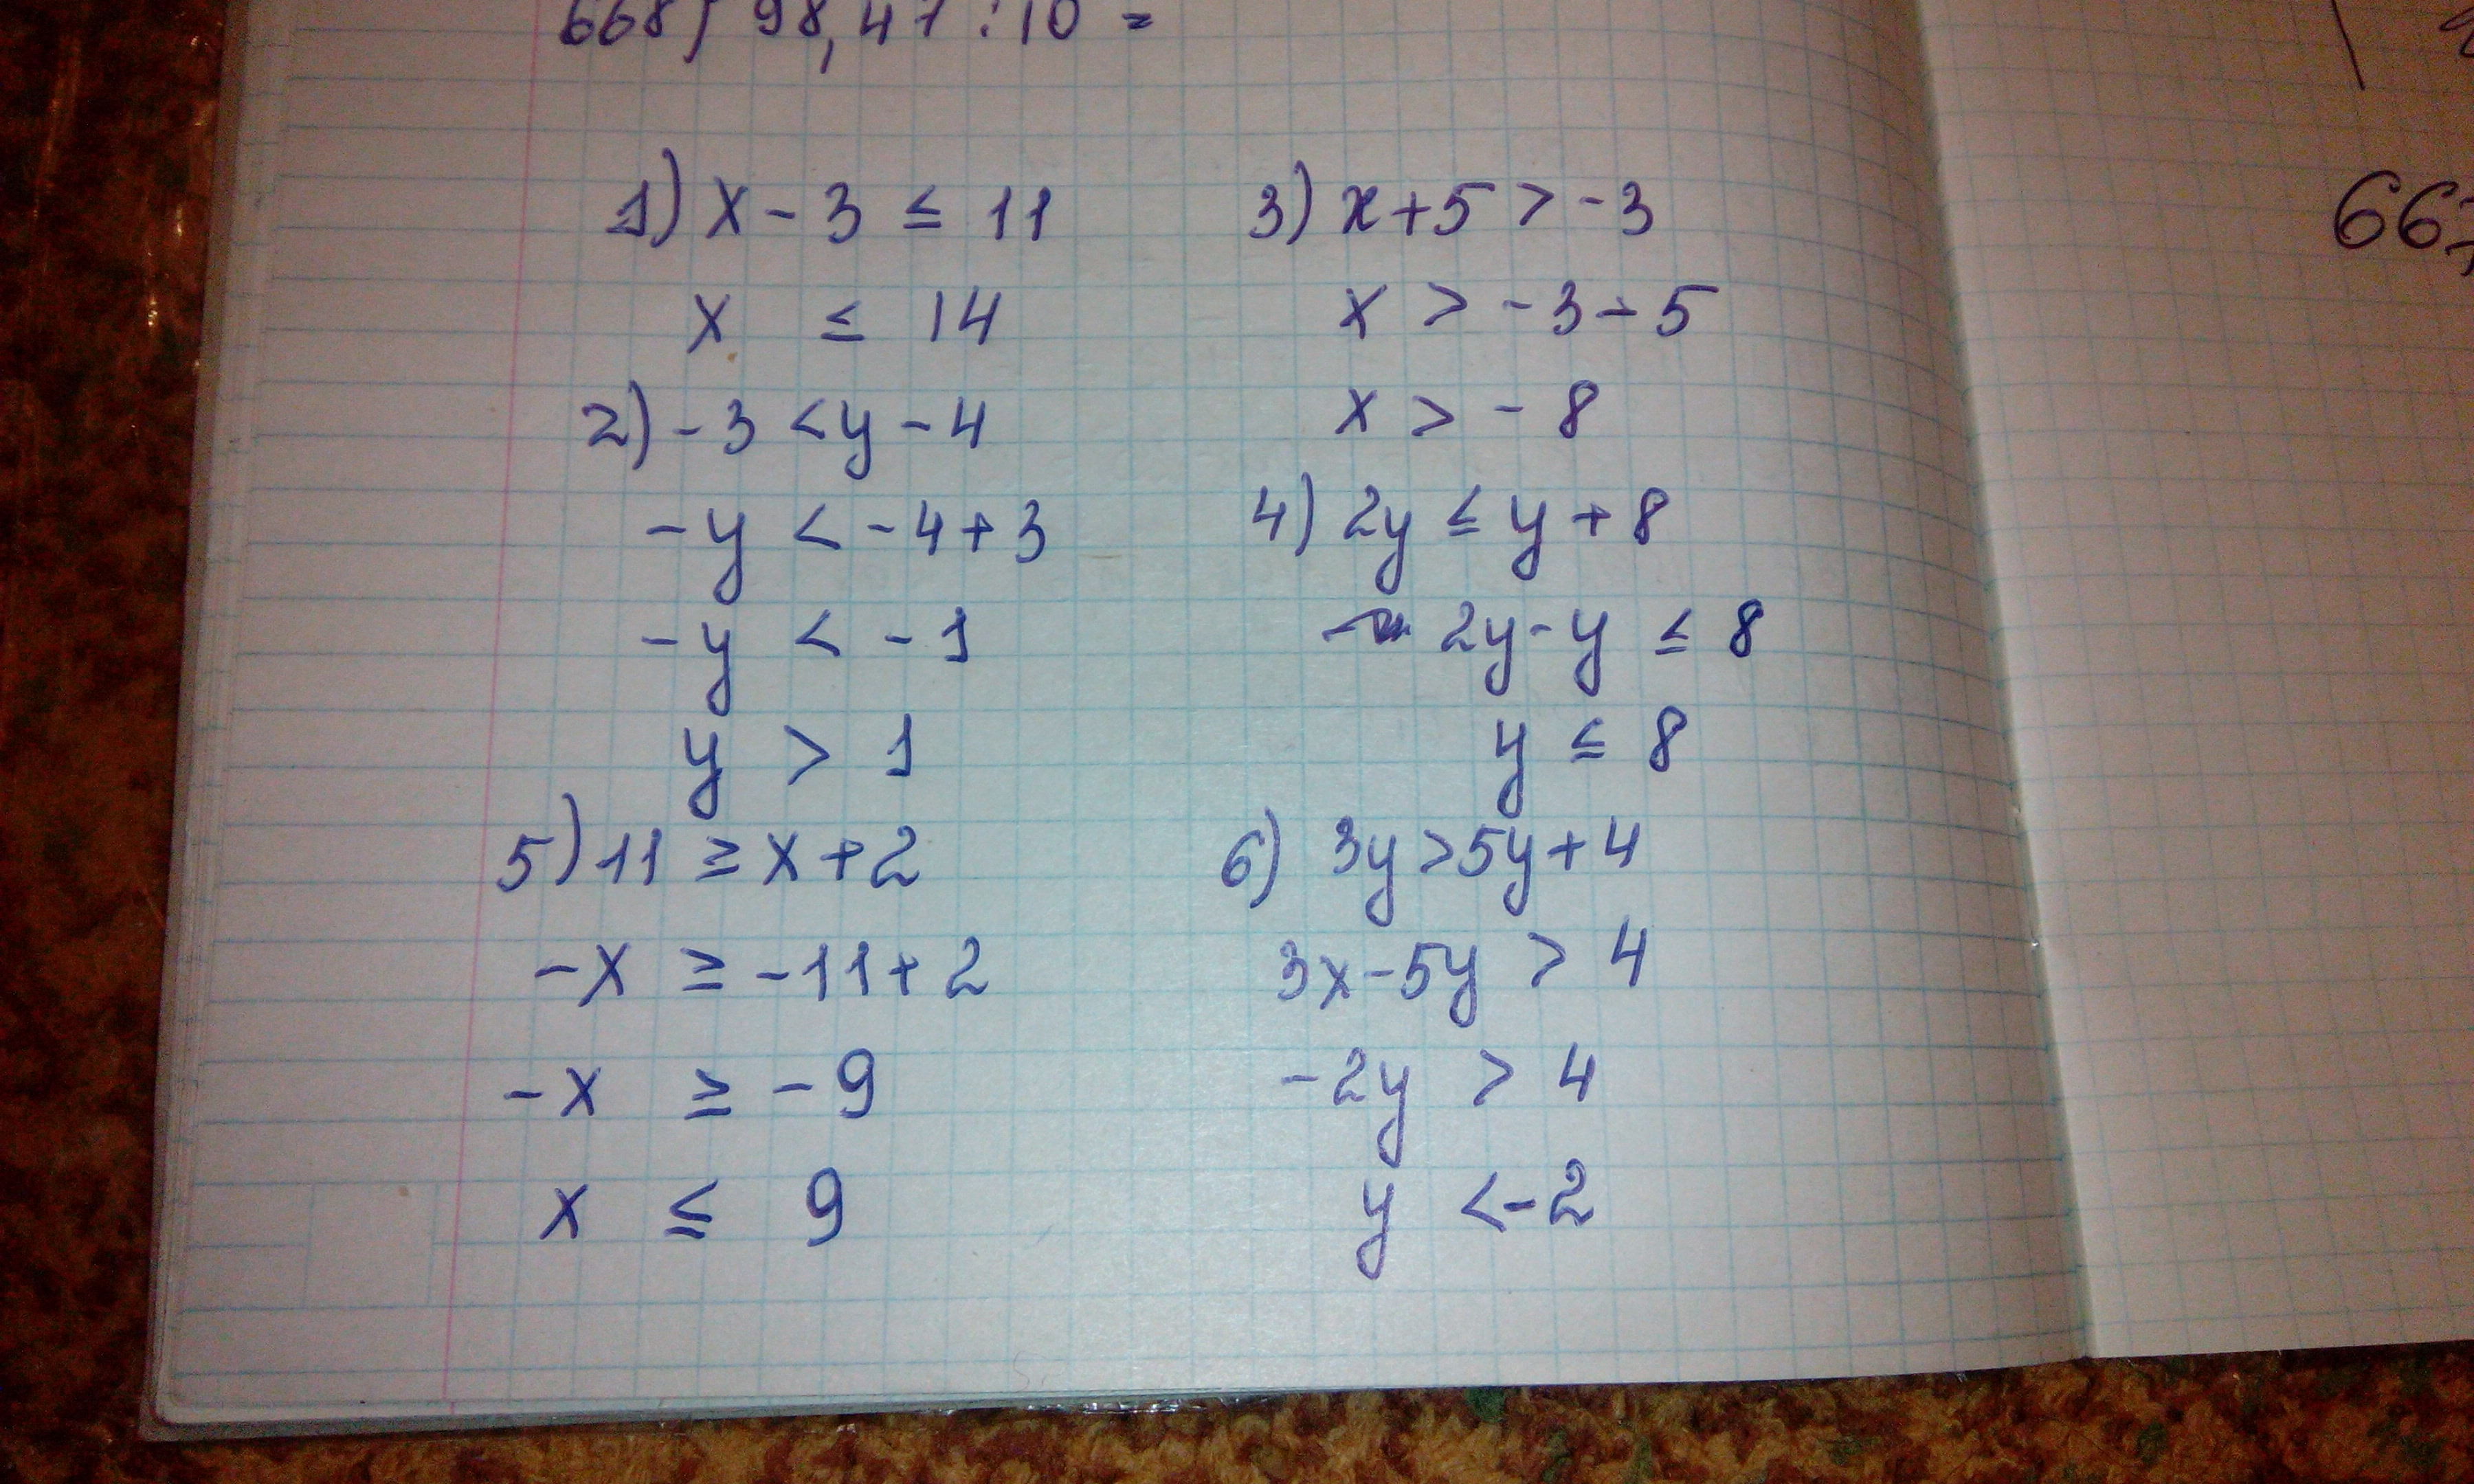 668) 98,47 : 10 =
1) x - 3 ≤ 11
x ≤ 14
2) -3 < y - 4
-y < -4 + 3
-y < -1
y > 1
5) 11 ≥ x + 2
-x ≥ -11 + 2
-x ≥ -9
x ≤ 9
3) x + 5 > -3
x > -3 - 5
x > -8
4) 2y ≤ y + 8
2y - y ≤ 8
y ≤ 8
6) 3y > 5y + 4
3x - 5y > 4
-2y > 4
y < -2
667